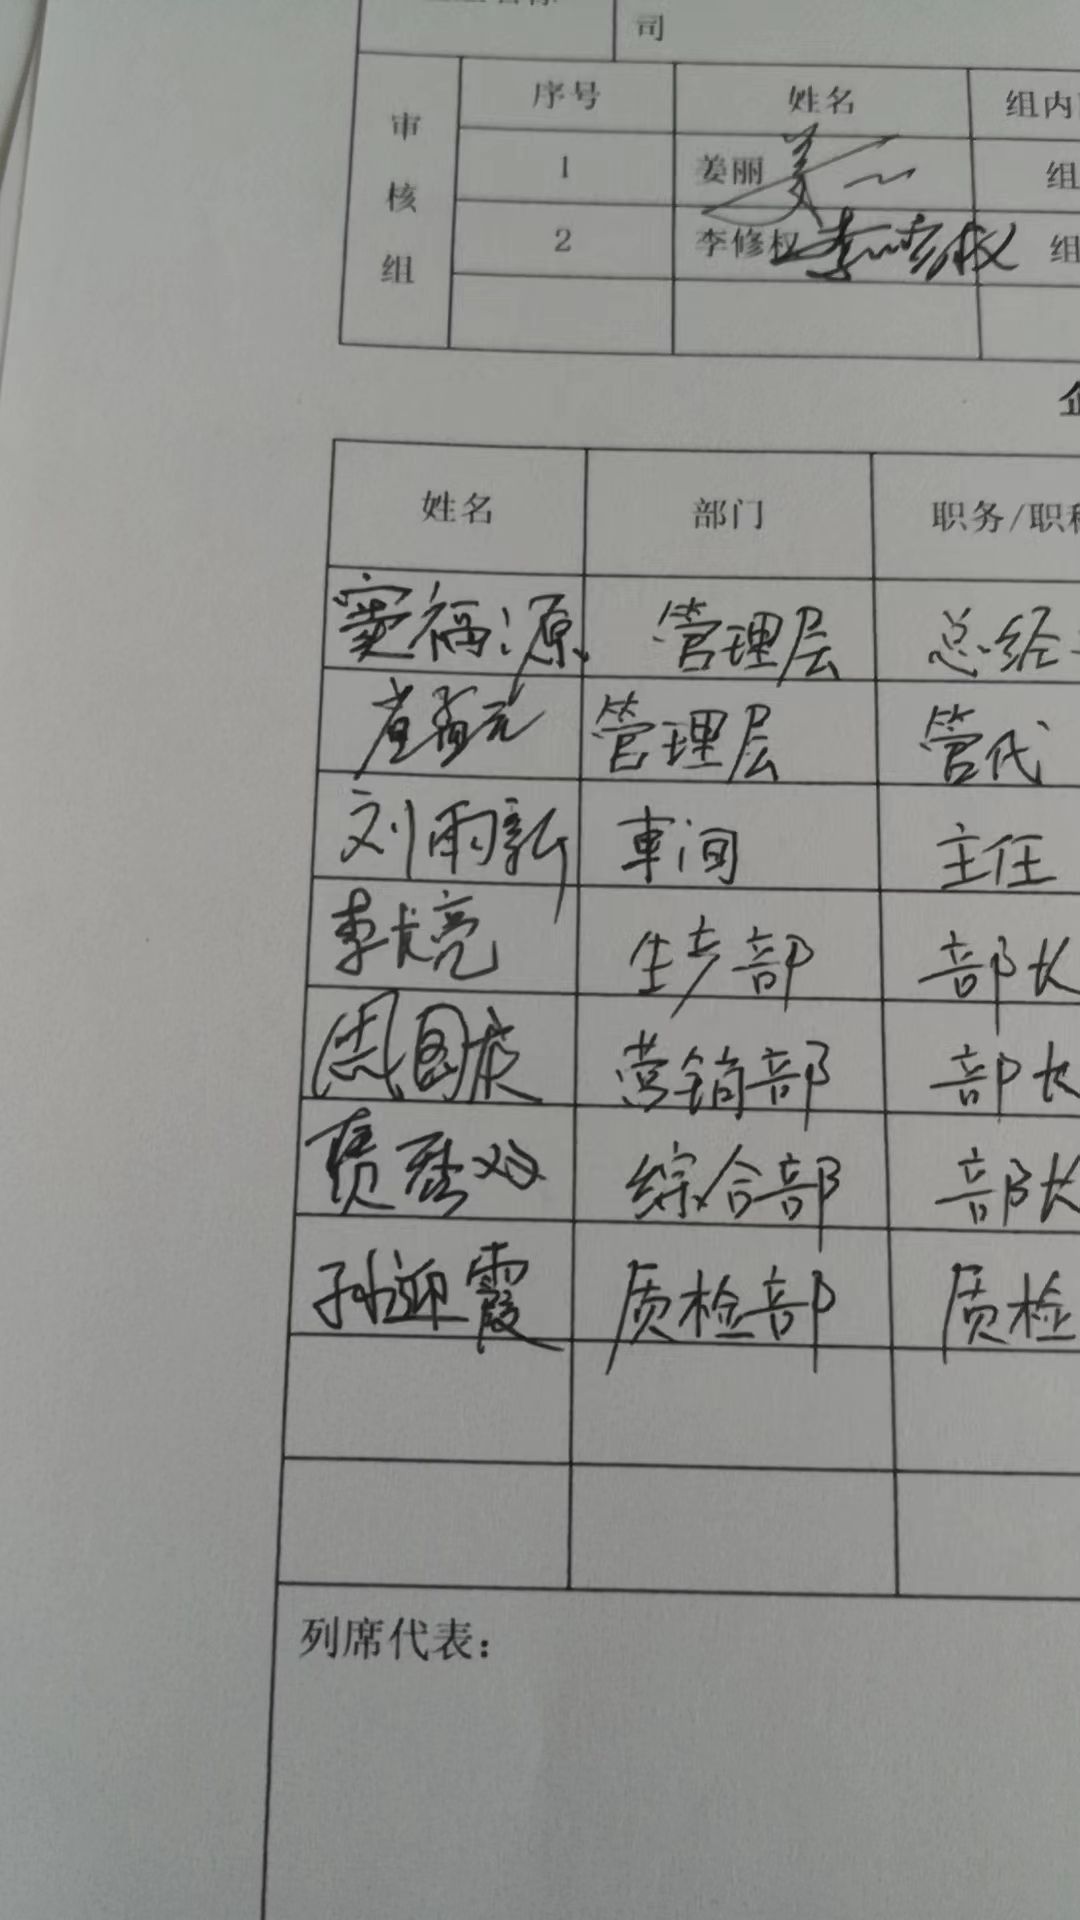 司
审核组
序号 姓名 组内
1 姜丽 姜 组
2 李修权 李修权 组
姓名 部门 职务/职称
窦福源 管理层 总经
管理层 管代
刘雨新 车间 主任
李大亮 生产部 部长
周国庆 营销部 部长
贾 综合部 部长
孙迎霞 质检部 质检
列席代表：